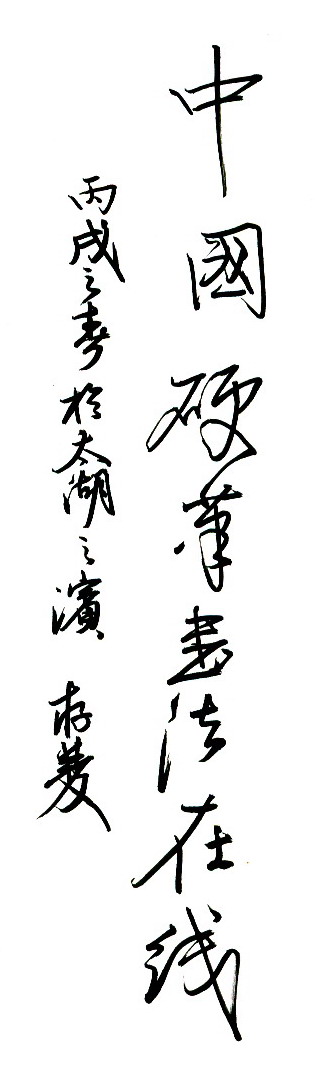 中國硬筆書法在线
丙戌之春於太湖之濱 存菱